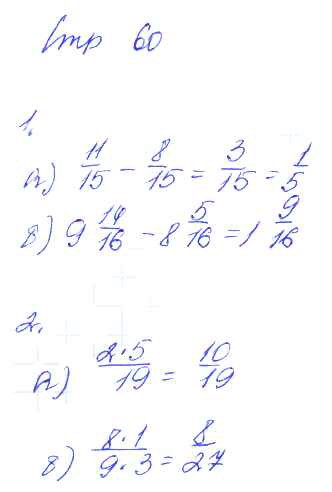 Стр 60
1.
а) 11/15 - 8/15 = 3/15 = 1/5
в) 9 14/16 - 8 5/16 = 1 9/16
2.
а) 2·5/19 = 10/19
в) 8·1/9·3 = 8/27